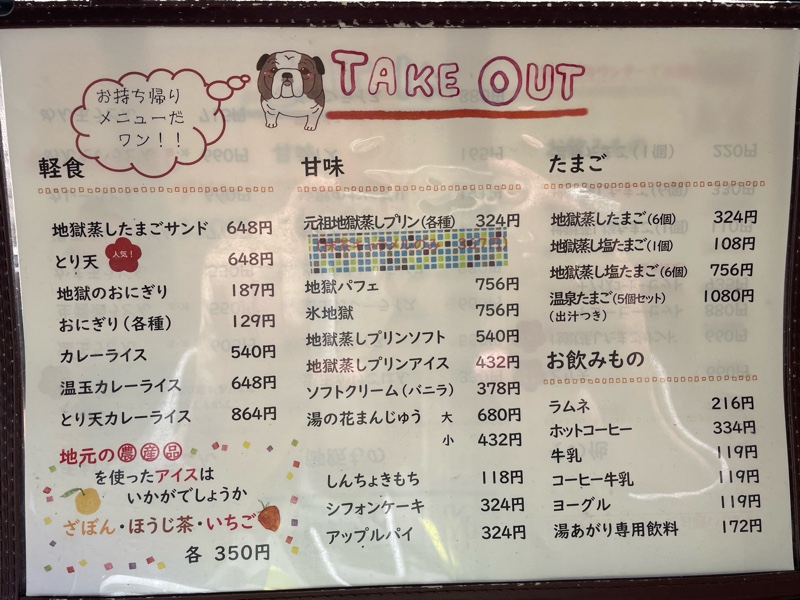 お持ち帰り
メニューだ
ワン！！
TAKE OUT
軽食
地獄蒸したまごサンド 648円
とり天 人気！ 648円
地獄のおにぎり 187円
おにぎり(各種) 129円
カレーライス 540円
温玉カレーライス 648円
とり天カレーライス 864円
地元の農産品
を使ったアイスは
いかがでしょうか
ざぼん・ほうじ茶・いちご
各 350円
甘味
元祖地獄蒸しプリン(各種) 324円
地獄パフェ 756円
氷地獄 756円
地獄蒸しプリンソフト 540円
地獄蒸しプリンアイス 432円
ソフトクリーム(バニラ) 378円
湯の花まんじゅう 大 680円
小 432円
しんちょきもち 118円
シフォンケーキ 324円
アップルパイ 324円
たまご
地獄蒸したまご(6個) 324円
地獄蒸し塩たまご(1個) 108円
地獄蒸し塩たまご(6個) 756円
温泉たまご(5個セット) 1080円
(出汁つき)
お飲みもの
ラムネ 216円
ホットコーヒー 334円
牛乳 119円
コーヒー牛乳 119円
ヨーグル 119円
湯あがり専用飲料 172円